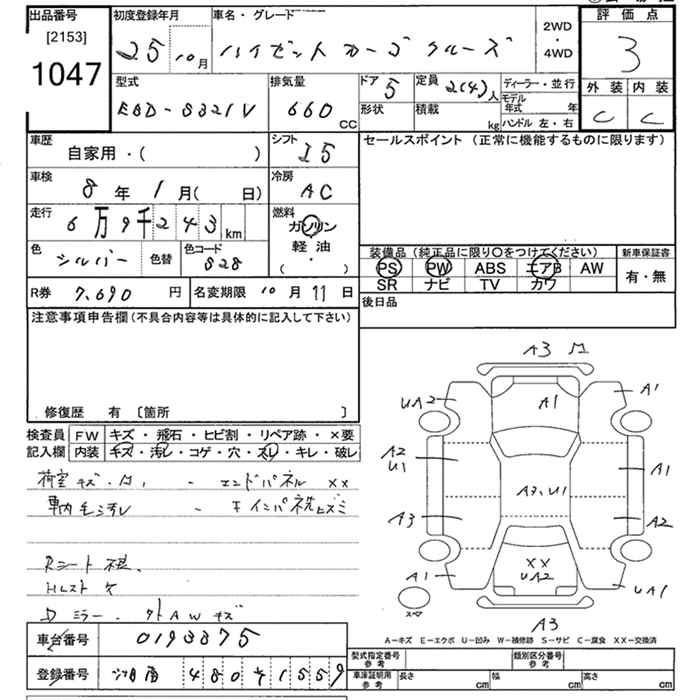 出品番号 初度登録年月 車名・グレード 評価点
[2153]
1047
25 10月 ハイゼット カーゴ クルーズ 2WD・4WD 3
型式 排気量 ドア 5 定員 2(4)人 ディーラー・並行 外装 内装
EBD-S321V 660CC 形状 積載 kg モデル年式 年 C C
ハンドル 左・右
車歴 シフト セールスポイント (正常に機能するものに限ります)
自家用・( ) I5
車検 冷房
8年 1月( 日) AC
走行 燃料
6万9千243km ガソリン
軽油
( ・ )
色 シルバー 色替 色コード S28
装備品 (純正品に限り○をつけてください) 新車保証書
PS PW ABS エアB AW 有・無
SR ナビ TV カワ
R券 7,690円 名変期限 10月11日
後日品
注意事項申告欄(不具合内容等は具体的に記入して下さい)
修復歴 有 [箇所 ]
検査員 FW キズ・飛石・ヒビ割・リペア跡・×要
記入欄 内装 キズ・汚レ・コゲ・穴・スレ・キレ・破レ
荷室キズ・ - エンドパネル XX
車内 - インパネ
Rシート
Dミラー・ AWキズ
車台番号 0193375
登録番号 480 1559
A3
A1
UA2 A1
A2
U1 A1
A3、U1
A3 A2
XX
UA2
A1 UA1
スペア
A3
A-キズ E-エクボ U-凹み W-補修跡 S-サビ C-腐食 XX-交換済
型式指定番号 参考 類別区分番号 参考
車庫証明用 参考 長さ cm 幅 cm 高さ cm